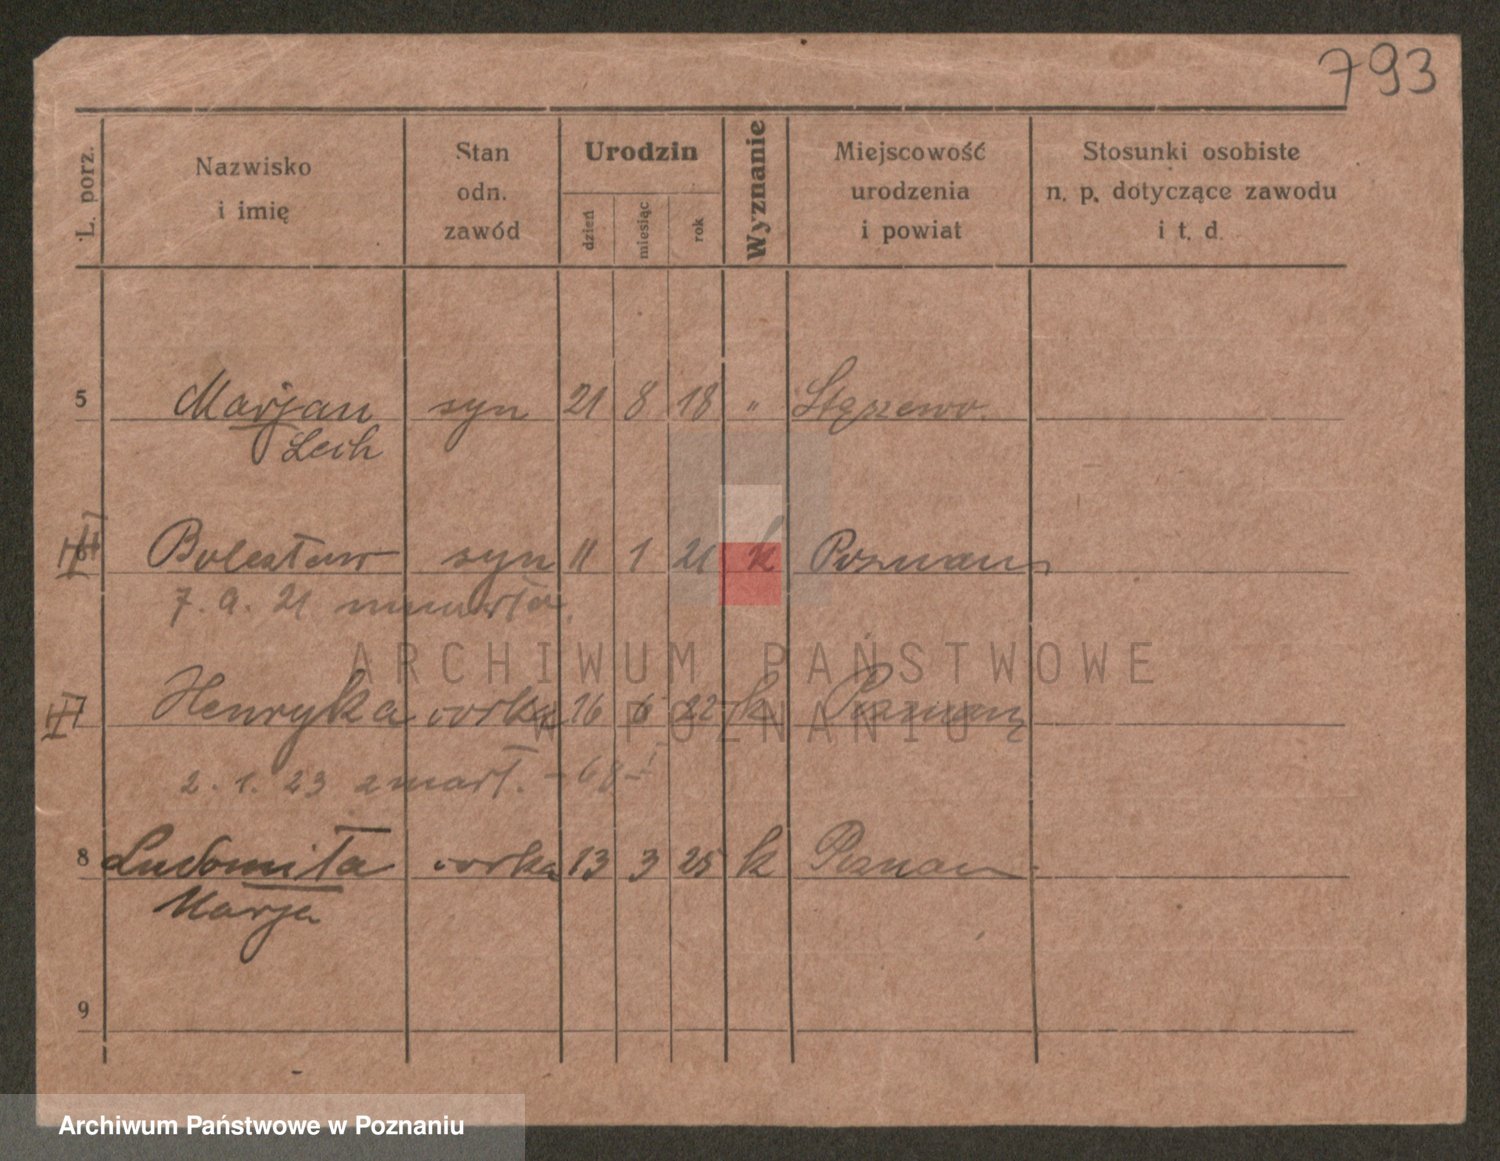 793
L. porz.
Nazwisko i imię
Stan odn. zawód
Urodzin
dzień miesiąc rok
Wyznanie
Miejscowość urodzenia i powiat
Stosunki osobiste n. p. dotyczące zawodu i t. d.
5 Marjan syn 21 8 18 " Stęszewo.
Lech
6 Bolesław syn 11 1 21 k Poznan
7. 9. 21
7 Henryka corka 16 6 22 k Poznan
2. 1. 23 zmarł.
8 Ludomiła corka 13 3 25 k Poznan
Marja
9
ARCHIWUM PAŃSTWOWE
W POZNANIU
Archiwum Państwowe w Poznaniu